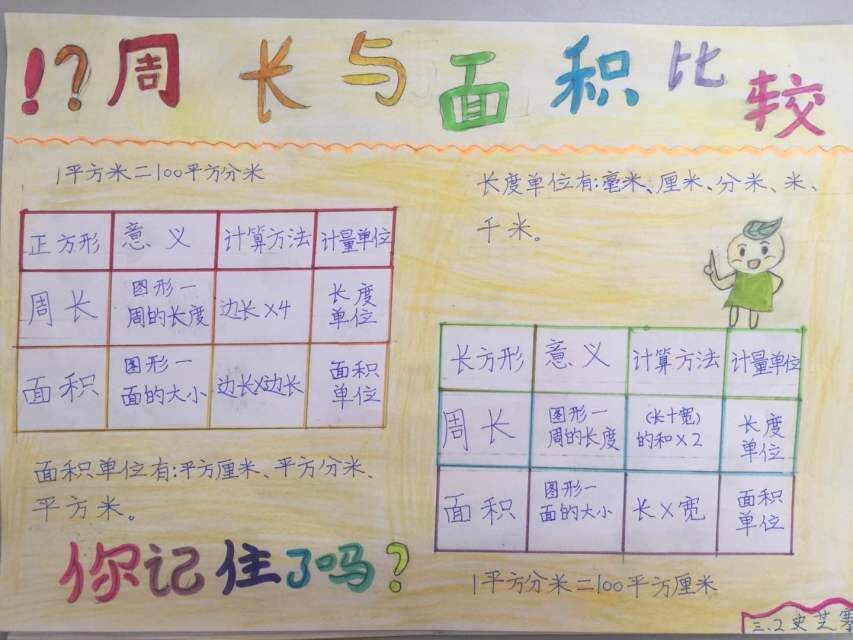 !?周长与面积比较
1平方米=100平方分米
正方形 意义 计算方法 计量单位
周长 图形一周的长度 边长×4 长度单位
面积 图形一面的大小 边长×边长 面积单位
面积单位有:平方厘米、平方分米、
平方米。
你记住了吗?
长度单位有:毫米、厘米、分米、米、
千米。
长方形 意义 计算方法 计量单位
周长 图形一周的长度 (长+宽)的和×2 长度单位
面积 图形一面的大小 长×宽 面积单位
1平方分米=100平方厘米
三.2史芝